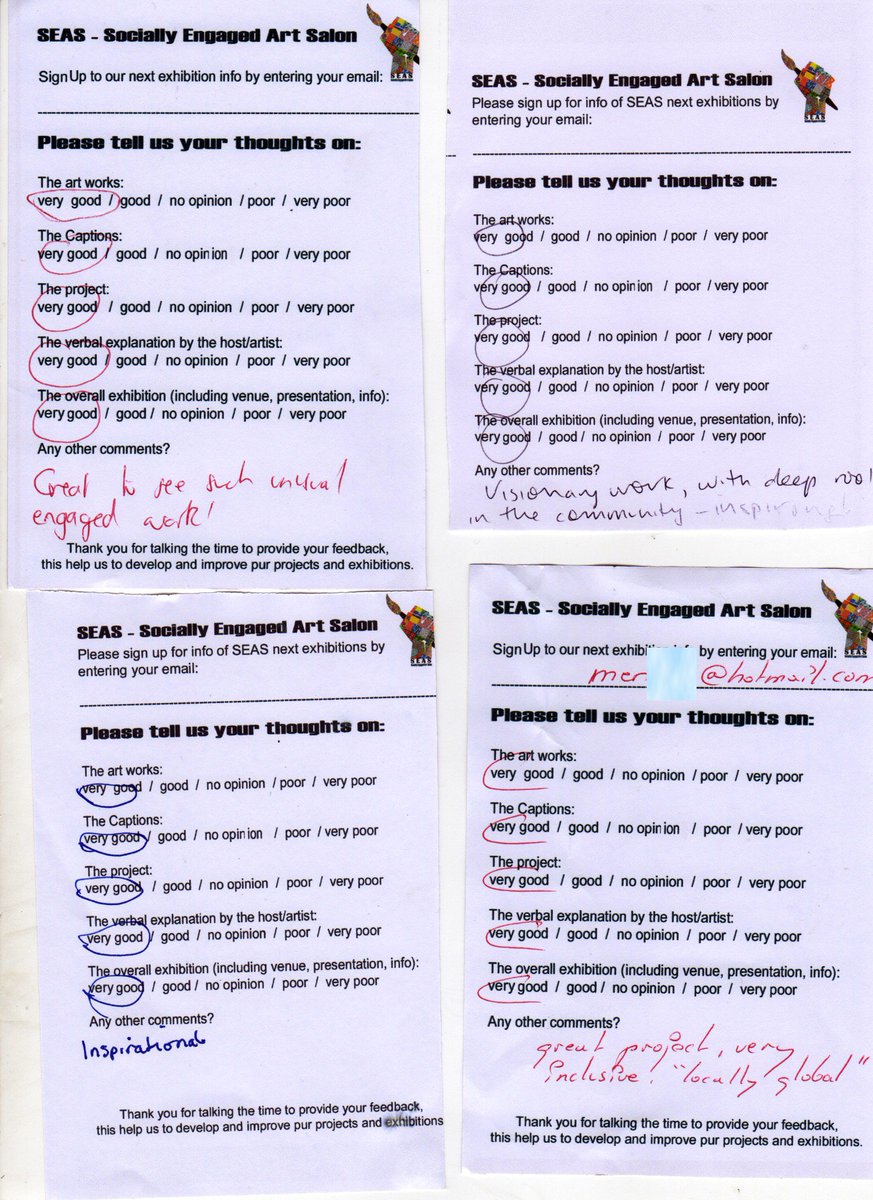 SEAS - Socially Engaged Art Salon
Sign Up to our next exhibition info by entering your email:
SEAS
Please tell us your thoughts on:
The art works:
very good / good / no opinion / poor / very poor
The Captions:
very good / good / no opinion / poor / very poor
The project:
very good / good / no opinion / poor / very poor
The verbal explanation by the host/artist:
very good / good / no opinion / poor / very poor
The overall exhibition (including venue, presentation, info):
very good / good / no opinion / poor / very poor
Any other comments?
Great to see such unusual
engaged work!
Thank you for talking the time to provide your feedback,
this help us to develop and improve pur projects and exhibitions.
SEAS - Socially Engaged Art Salon
Please sign up for info of SEAS next exhibitions by
entering your email:
SEAS
Please tell us your thoughts on:
The art works:
very good / good / no opinion / poor / very poor
The Captions:
very good / good / no opinion / poor / very poor
The project:
very good / good / no opinion / poor / very poor
The verbal explanation by the host/artist:
very good / good / no opinion / poor / very poor
The overall exhibition (including venue, presentation, info):
very good / good / no opinion / poor / very poor
Any other comments?
Visionary work, with deep roo
in the community - inspiring!
SEAS - Socially Engaged Art Salon
Please sign up for info of SEAS next exhibitions by
entering your email:
SEAS
Please tell us your thoughts on:
The art works:
very good / good / no opinion / poor / very poor
The Captions:
very good / good / no opinion / poor / very poor
The project:
very good / good / no opinion / poor / very poor
The verbal explanation by the host/artist:
very good / good / no opinion / poor / very poor
The overall exhibition (including venue, presentation, info):
very good / good / no opinion / poor / very poor
Any other comments?
Inspirational
Thank you for talking the time to provide your feedback,
this help us to develop and improve pur projects and exhibitions
SEAS - Socially Engaged Art Salon
Sign Up to our next exhibition info by entering your email:
SEAS
mer @hotmail.com
Please tell us your thoughts on:
The art works:
very good / good / no opinion / poor / very poor
The Captions:
very good / good / no opinion / poor / very poor
The project:
very good / good / no opinion / poor / very poor
The verbal explanation by the host/artist:
very good / good / no opinion / poor / very poor
The overall exhibition (including venue, presentation, info):
very good / good / no opinion / poor / very poor
Any other comments?
great project, very
inclusive. "locally global"
Thank you for talking the time to provide your feedback,
this help us to develop and improve pur projects and exhibitions.